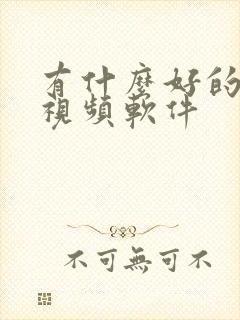 有什麼好的
視頻軟件
不可無可不